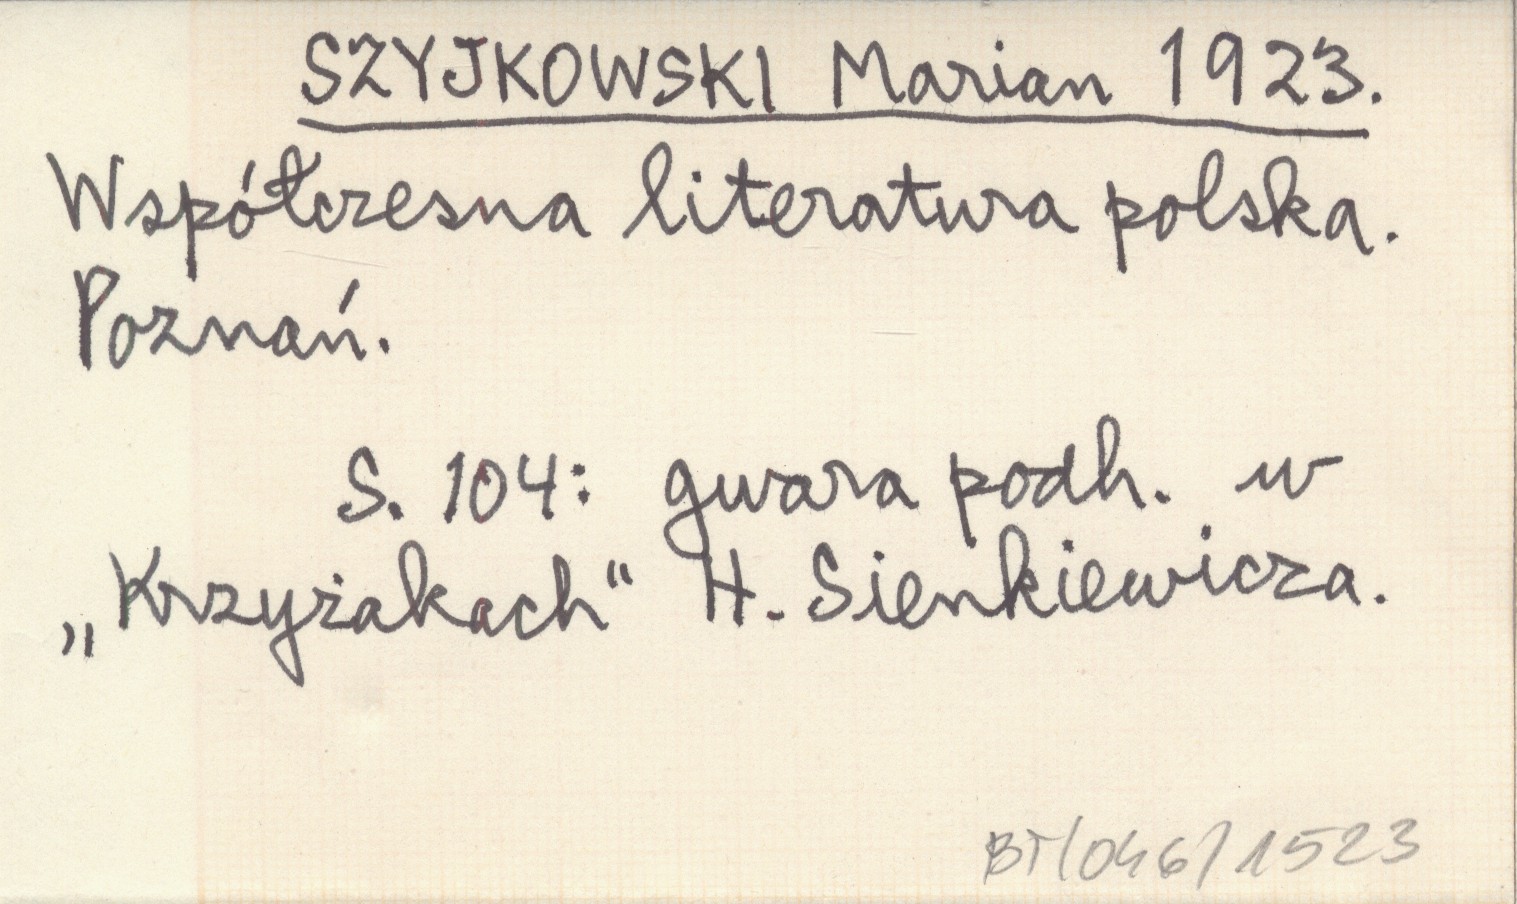 SZYJKOWSKI Marian 1923.
Współczesna literatura polska.
Poznań.
S. 104: gwara podh. w
„Krzyżakach“ H. Sienkiewicza.
BT/046/1523